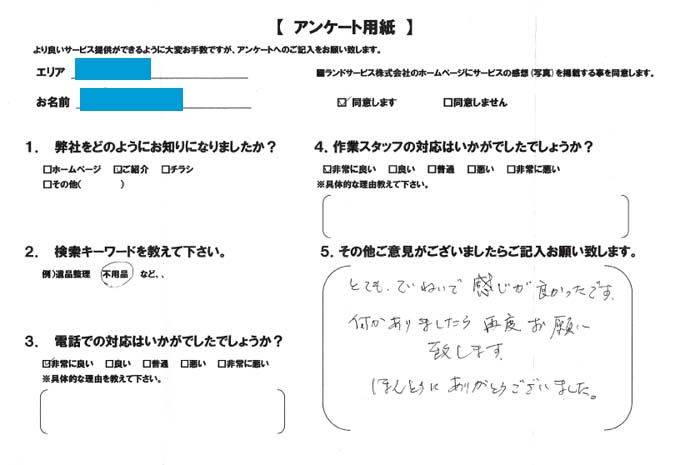 【 アンケート用紙 】
より良いサービス提供ができるように大変お手数ですが、アンケートへのご記入をお願い致します。
エリア
■ランドサービス株式会社のホームページにサービスの感想(写真)を掲載する事を同意します。
お名前
☑同意します □同意しません
1. 弊社をどのようにお知りになりましたか?
□ホームページ ☑ご紹介 □チラシ
□その他( )
2. 検索キーワードを教えて下さい。
例)遺品整理 不用品 など、、
3. 電話での対応はいかがでしたでしょうか?
☑非常に良い □良い □普通 □悪い □非常に悪い
※具体的な理由を教えて下さい。
4. 作業スタッフの対応はいかがでしたでしょうか?
☑非常に良い □良い □普通 □悪い □非常に悪い
※具体的な理由教えて下さい。
5. その他ご意見がございましたらご記入お願い致します。
とても、ていねいで 感じが 良かったです。
何かありましたら 再度 お願い
致します。
ほんとうに ありがとうございました。